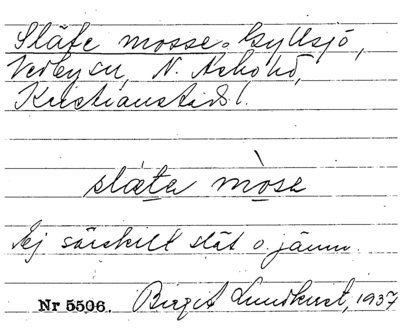 Släte mosse. Gyllsjö,
Verbysn, N. Åsbohd,
Kristianstads l.
släta mòsa
Ej särskilt slät o. jämn.
Nr 5506. Birgit Lundkvist, 1937